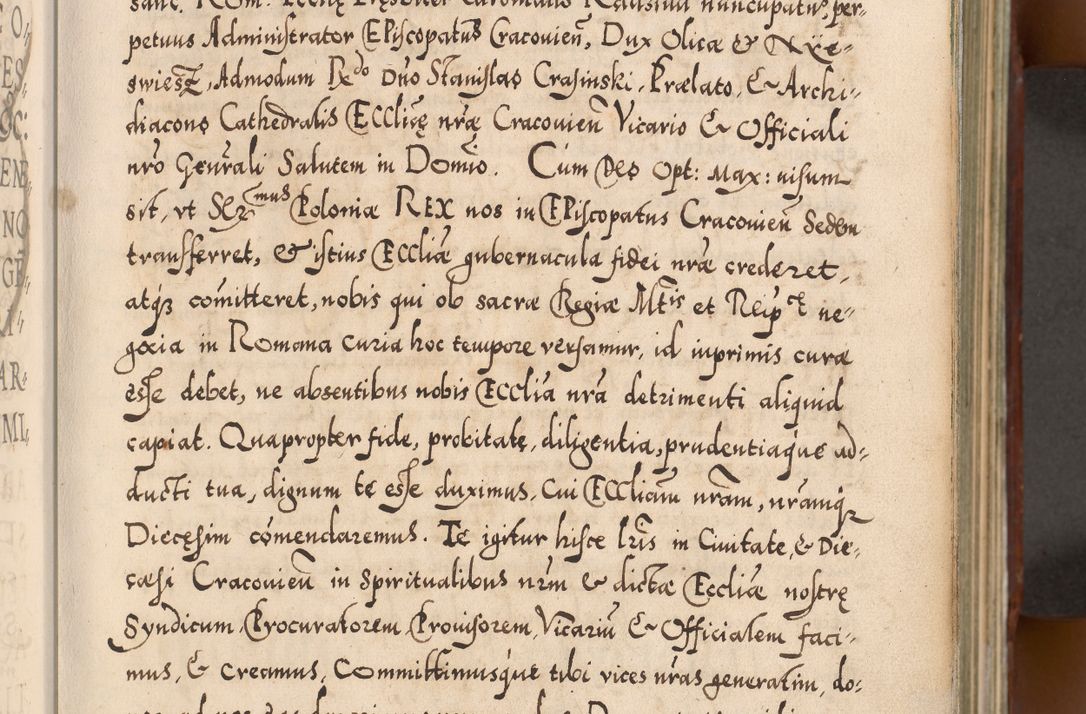 sanc. Rom. Ecclę Presbiter Cardinalis Radziuil nuncupatus, per-
petuus Administrator Episcopatus Cracouieñ, Dux Olicæ & Nÿe-
swiesz, Admodum Rdo Dño Stanislao Crasinski, Prælato, & Archi-
diacono Cathedralis Ecclięę nræ Cracouieñ Vicario & Officiali
nro Genrali Salutem in Domio. Cum Deo Opt: Max: uisum
sit, vt Sermus Poloniæ Rex nos in Episcopatus Cracouieñ Sedem
transferret, & istius Eccliæ gubernacula fidei nræ crederet,
atqz comitteret, nobis qui ob sacræ Regiæ Mtis et Reipcę ne-
gocia in Romana curia hoc tempore versamur, id inprimis curæ
esse debet, ne absentibus nobis Ecclia nra detrimenti aliquid
capiat. Quapropter fide, probitate, diligentia, prudentiaque ad-
ducti tua, dignum te esse duximus, cui Eccliam nram, nramqz
Diecęsim comendaremus. Te igitur hisce lris in Ciuitate, & Die-
cæsi Cracouieñ in Spiritualibus nrm & dictæ Eccliæ nostrę
Syndicum, Procuratorem, Prouisorem, Vicariu & Officialem faci-
mus, & creamus, Committimusque tibi vices nras generatim, do-